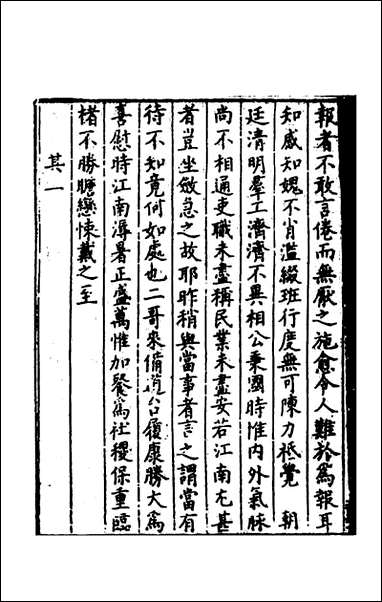 報者不敢言倦而無厭之施愈令人難於爲報耳
知感知媿不肖濫綴班行度無可陳力祗覺　朝
廷清明羣工濟濟不異相公秉國時惟内外氣脉
尚不相通吏職未盡稱民業未盡安若江南尤甚
者豈坐斂急之故耶昨稍與當事者言之謂當有
待不知竟何如處也二哥來備道台履康勝大爲
喜慰時江南溽暑正盛萬惟加餐爲社稷保重臨
楮不勝瞻戀悚戴之至
其一